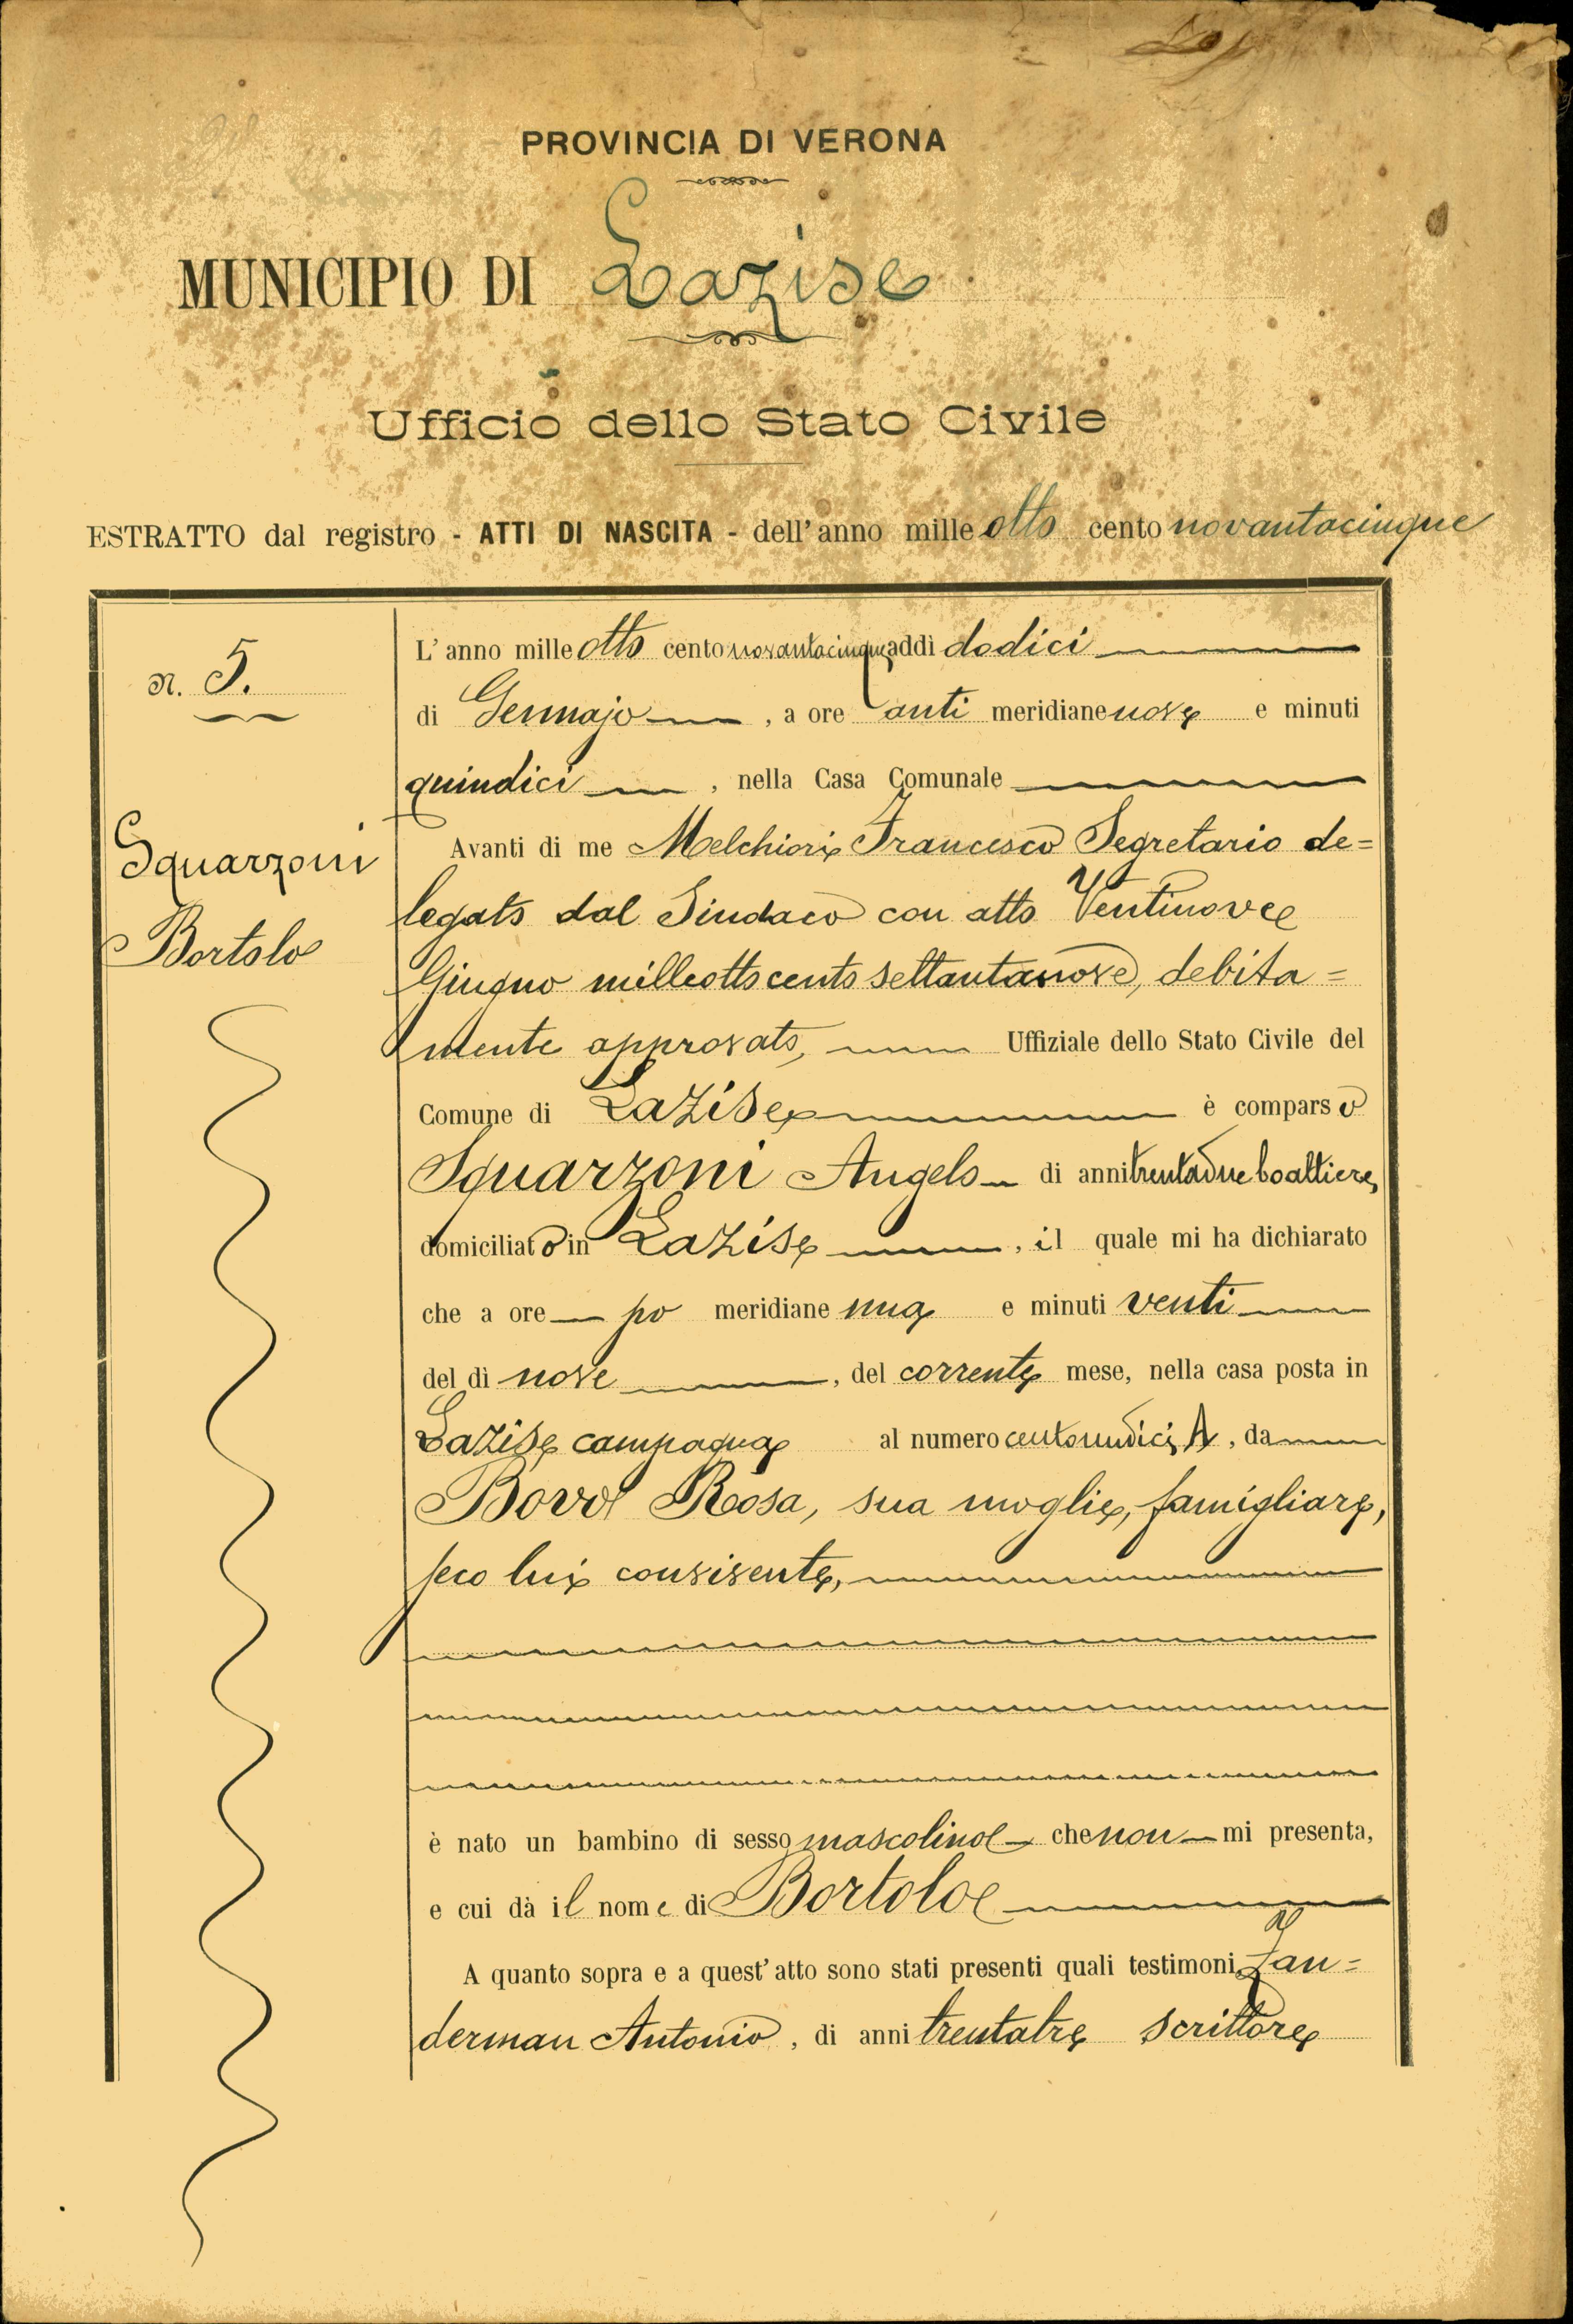 PROVINCIA DI VERONA
MUNICIPIO DI Lazise
Ufficio dello Stato Civile
ESTRATTO dal registro - ATTI DI NASCITA - dell'anno mille otto cento novantacinque
N. 5.
Squarzoni
Bortolo
L'anno mille otto cento novantacinque, addì dodici
di Gennajo, a ore anti meridiane nove e minuti
quindici, nella Casa Comunale
Avanti di me Melchiori Francesco Segretario de=
legato dal Sindaco con atto Ventinove
Giugno milleottocento settantanove, debita=
mente approvato, Uffiziale dello Stato Civile del
Comune di Lazise è comparso
Squarzoni Angelo di anni trentadue boattiere,
domiciliato in Lazise, il quale mi ha dichiarato
che a ore po meridiane una e minuti venti
del dì nove, del corrente mese, nella casa posta in
Lazise campagna al numero centoundici, A, da
Bovo Rosa, sua moglie, famigliare,
seco lui convivente,
è nato un bambino di sesso mascolino che non mi presenta,
e cui dà il nome di Bortolo
A quanto sopra e a quest'atto sono stati presenti quali testimoni Zan=
derman Antonio, di anni trentatre scrittore